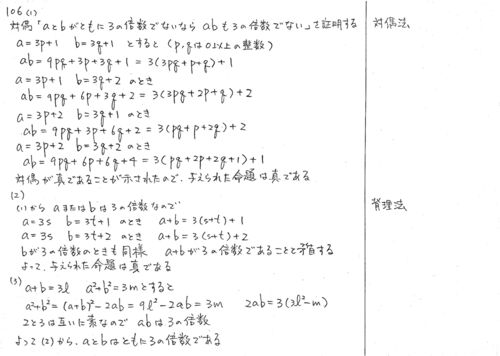 106 (1)
対偶「aとbがともに3の倍数でないなら abも3の倍数でない」を証明する
対偶法
a=3p+1 b=3q+1 とすると (p,qは0以上の整数)
ab=9pq+3p+3q+1=3(3pq+p+q)+1
a=3p+1 b=3q+2 のとき
ab=9pq+6p+3q+2=3(3pq+2p+q)+2
a=3p+2 b=3q+1 のとき
ab=9pq+3p+6q+2=3(pq+p+2q)+2
a=3p+2 b=3q+2 のとき
ab=9pq+6p+6q+4=3(pq+2p+2q+1)+1
対偶が真であることが示されたので、与えられた命題は真である
(2)
背理法
(1)から aまたはbは3の倍数なので
a=3s b=3t+1 のとき a+b=3(s+t)+1
a=3s b=3t+2 のとき a+b=3(s+t)+2
bが3の倍数のときも同様 a+bが3の倍数であることと矛盾する
よって、与えられた命題は真である
(3)
a+b=3l a²+b²=3m とすると
a²+b²=(a+b)²-2ab=9l²-2ab=3m 2ab=3(3l²-m)
2と3は互いに素なので abは3の倍数
よって(2)から、aとbはともに3の倍数である